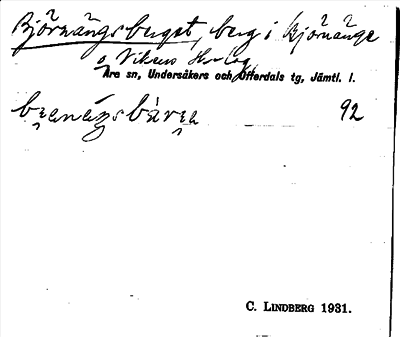 Björnängsberget, berg i Björnänge
o. Vikens
Åre sn, Undersåkers och Offerdals tg, Jämtl. l.
92
C. LINDBERG 1931.